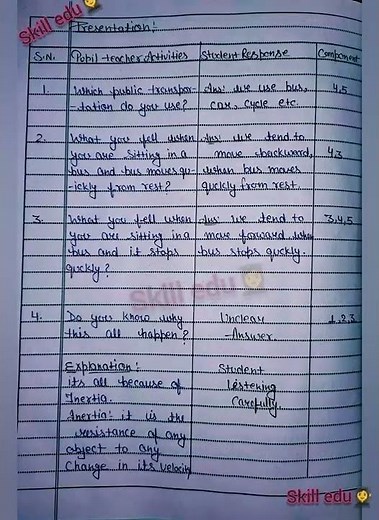 Skill edu
Presentation:
S.N. Pupil-teacher Activities Student Response Component
1. Which public transpor- Ans: we use bus, 4,5
-tation do you use? car, cycle etc.
2. What you fell when Ans: we tend to
you are sitting in a move backward, 4,3
bus and bus moves qu- when bus moves
-ickly from rest? quckly from rest.
3. What you fell when Ans: we tend to 3,4,5
you are sitting in a move forward when
bus and it stops bus stops quckly.
quckly?
Skill edu
4. Do you know why Unclear 1,2,3
this all happen? -Answer.
Explanation: Student
Its all because of Listening
Inertia. Carefully.
Inertia: it is the
resistance of any
object to any
Change in its velocity
Skill edu